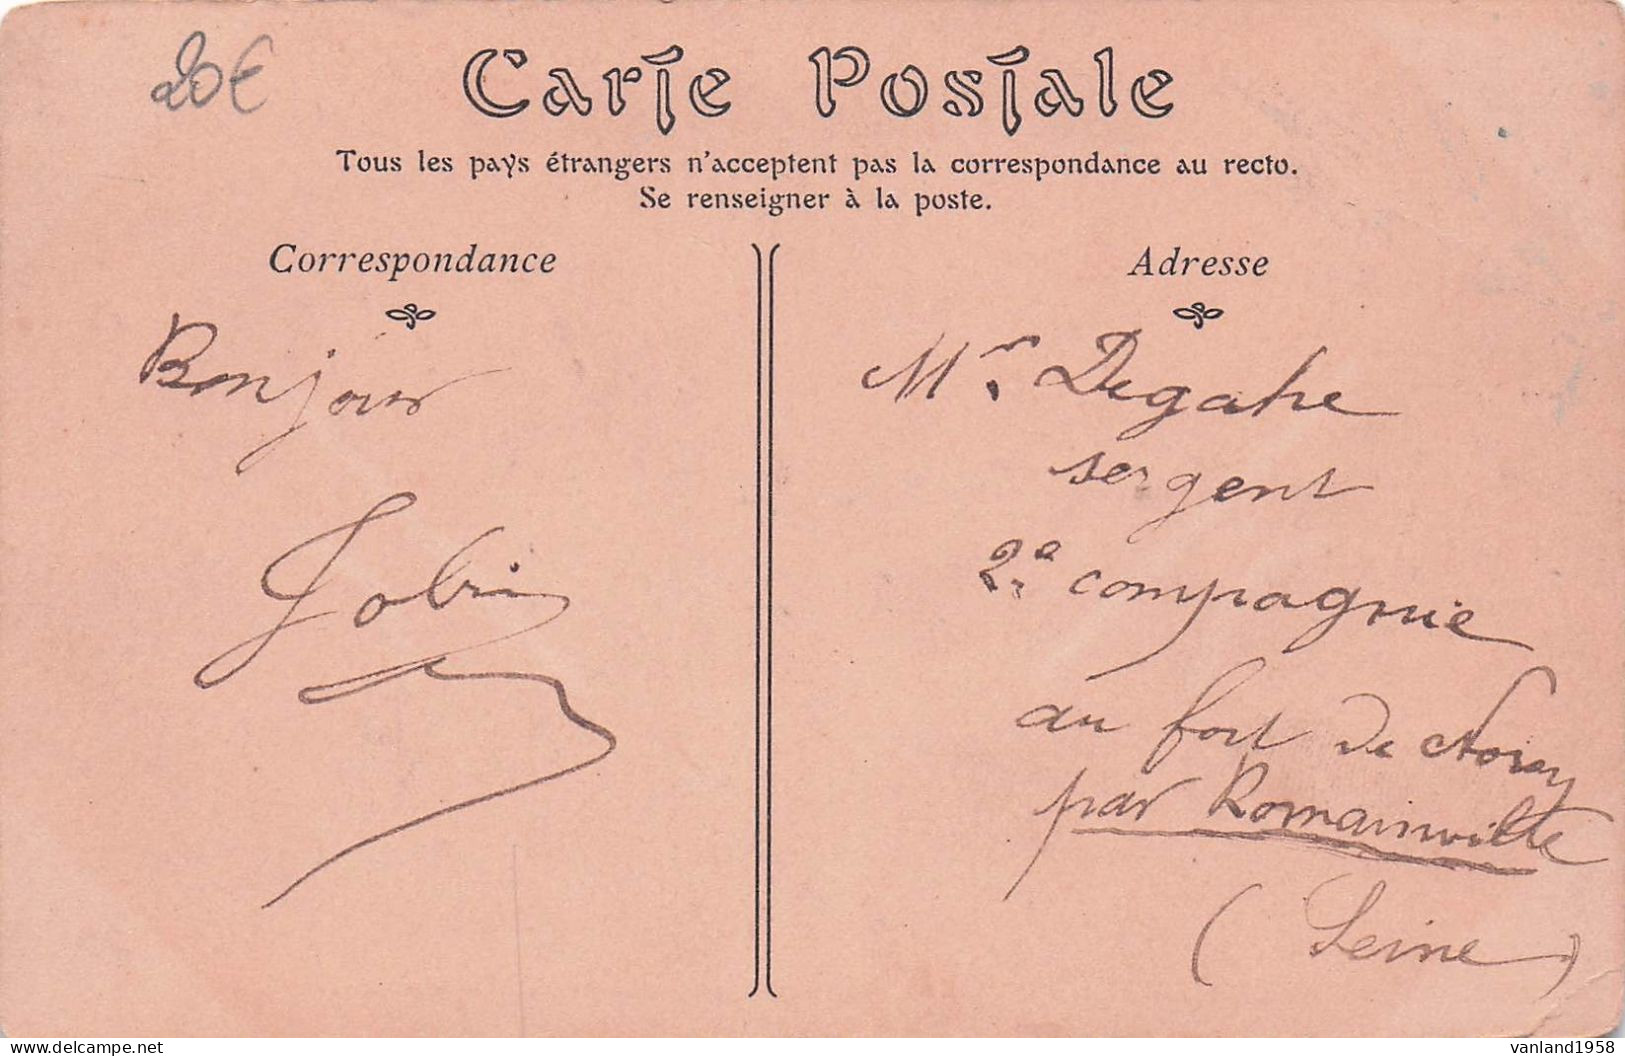 20€
Carte Postale
Tous les pays étrangers n'acceptent pas la correspondance au recto.
Se renseigner à la poste.
Correspondance
Bonjour
Adresse
Mr. Degahe
sergent
2e compagnie
au fort de Noisy
par Romainville
(Seine)
delcampe.net
vanland1958